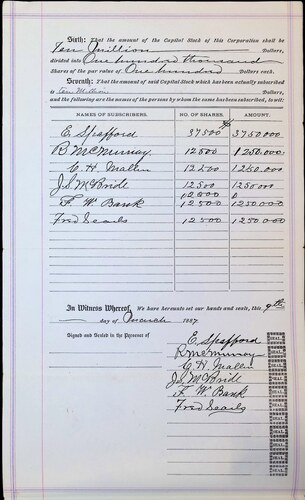 Sixth: That the amount of the Capital Stock of this Corporation shall be
Ten Million Dollars,
divided into One hundred thousand
Shares of the par value of One hundred Dollars each.
Seventh: That the amount of said Capital Stock which has been actually subscribed
is Ten Million Dollars,
and the following are the names of the persons by whom the same has been subscribed, to-wit:
NAMES OF SUBSCRIBERS. NO. OF SHARES. AMOUNT.
E Spafford 37500 3750000
R McMurray 12500 1250.000
C H Mallen 12500 1250.000
J.S. McBride 12500 1250.000
12500
F. W. Bank 12500 1250000
Fred Searls 12500 1250000
In Witness Whereof, We have hereunto set our hands and seals, this 9th
day of March 1887
Signed and Sealed in the Presence of
E Spafford SEAL
R McMurray SEAL
C H Mallen SEAL
J.S. McBride SEAL
F W Bank SEAL
Fred Searls SEAL